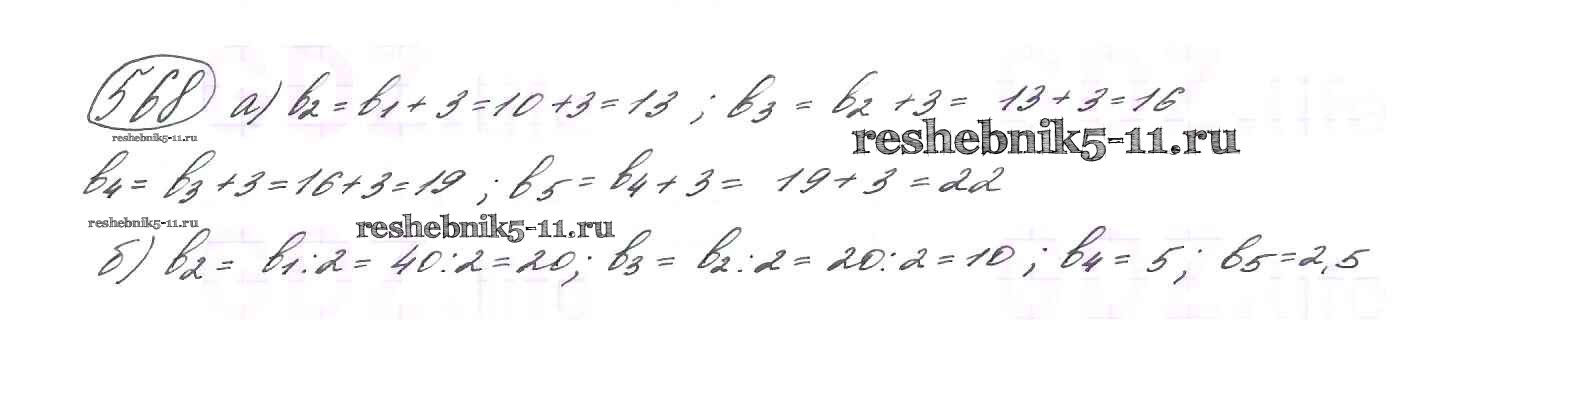 568 а) b₂ = b₁ + 3 = 10 + 3 = 13 ; b₃ = b₂ + 3 = 13 + 3 = 16
reshebnik5-11.ru
reshebnik5-11.ru
b₄ = b₃ + 3 = 16 + 3 = 19 ; b₅ = b₄ + 3 = 19 + 3 = 22
reshebnik5-11.ru
reshebnik5-11.ru
б) b₂ = b₁ : 2 = 40 : 2 = 20; b₃ = b₂ : 2 = 20 : 2 = 10 ; b₄ = 5 ; b₅ = 2,5